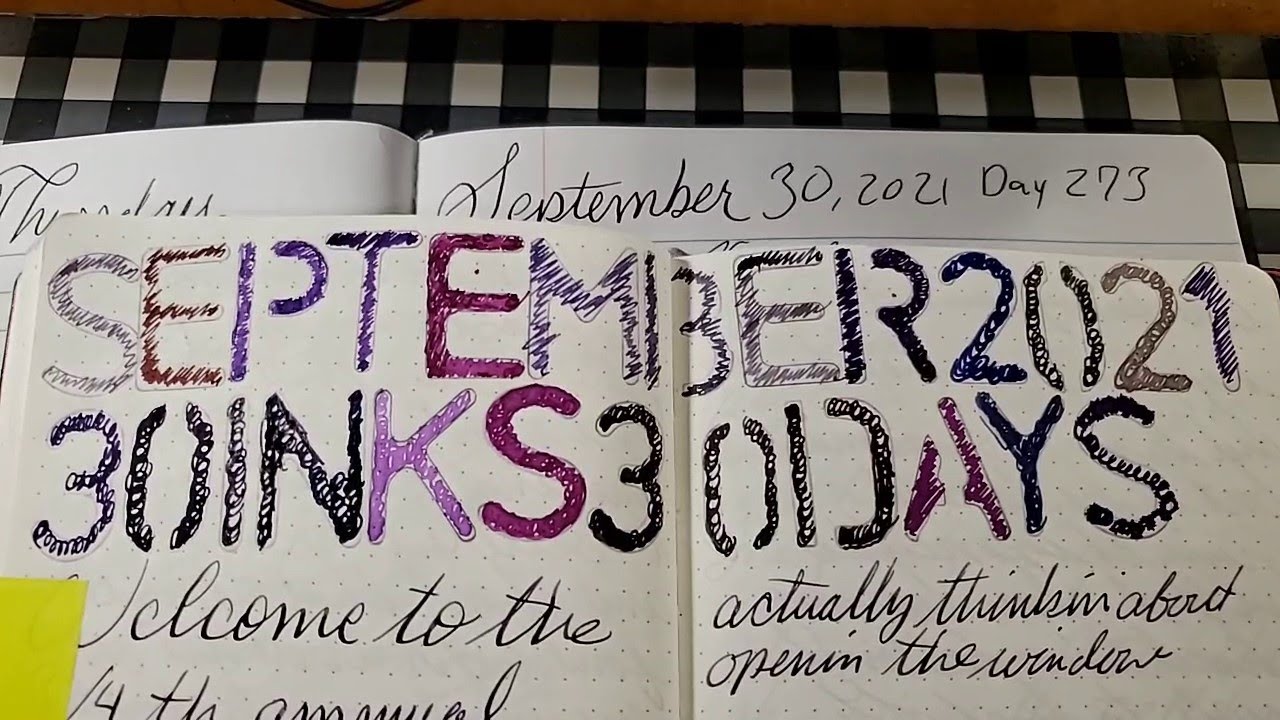 Thursday
September 30, 2021 Day 273
SEPTEMBER 2021
30 INKS 30 DAYS
Welcome to the
4th annual
actually thinkin about
openin the window